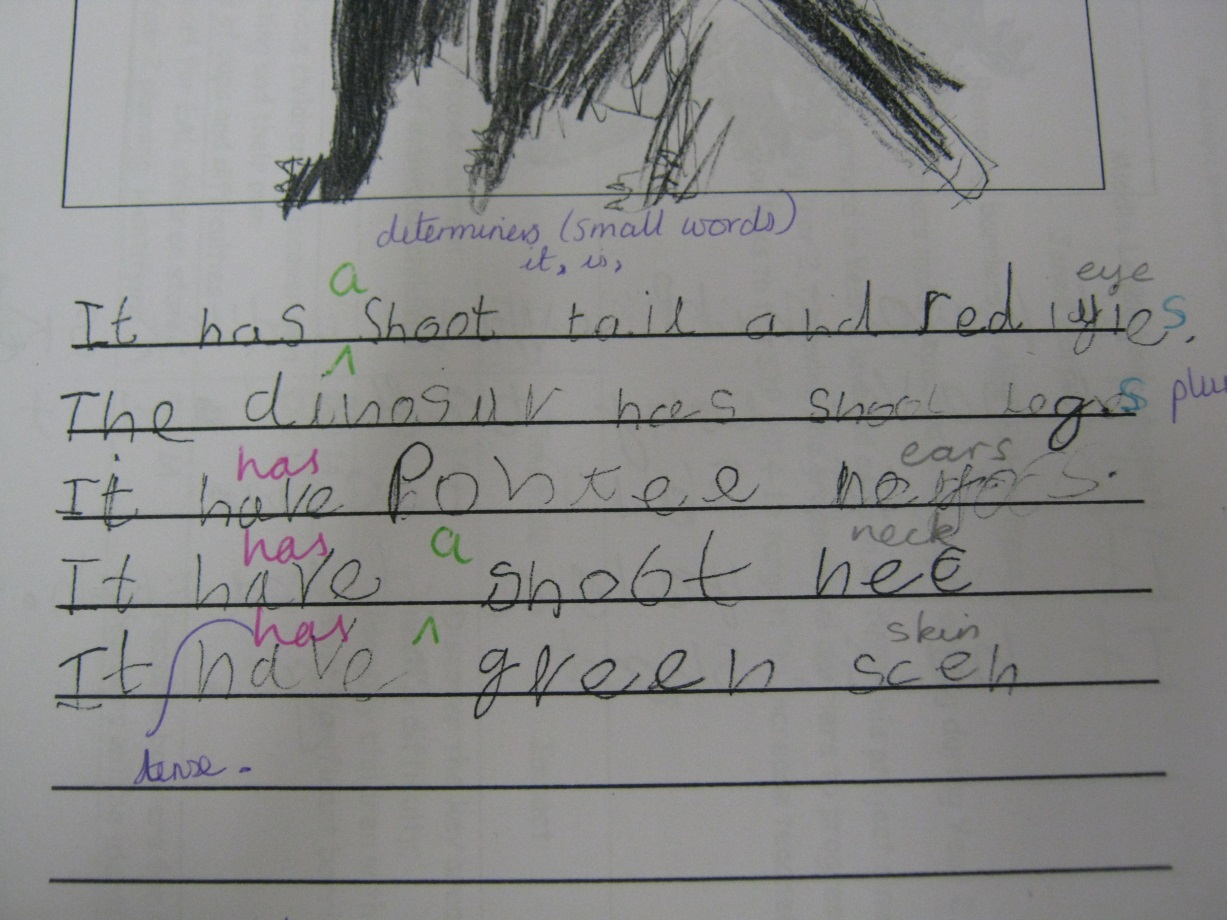 determiners (small words)
it, is,
a
eye
It has shoot tail and red s.
The dinosur has shoot legs
plu
has
ears
It have Pontee
has
a
neck
It have shoot nee
has
skin
It have green scen
tense.